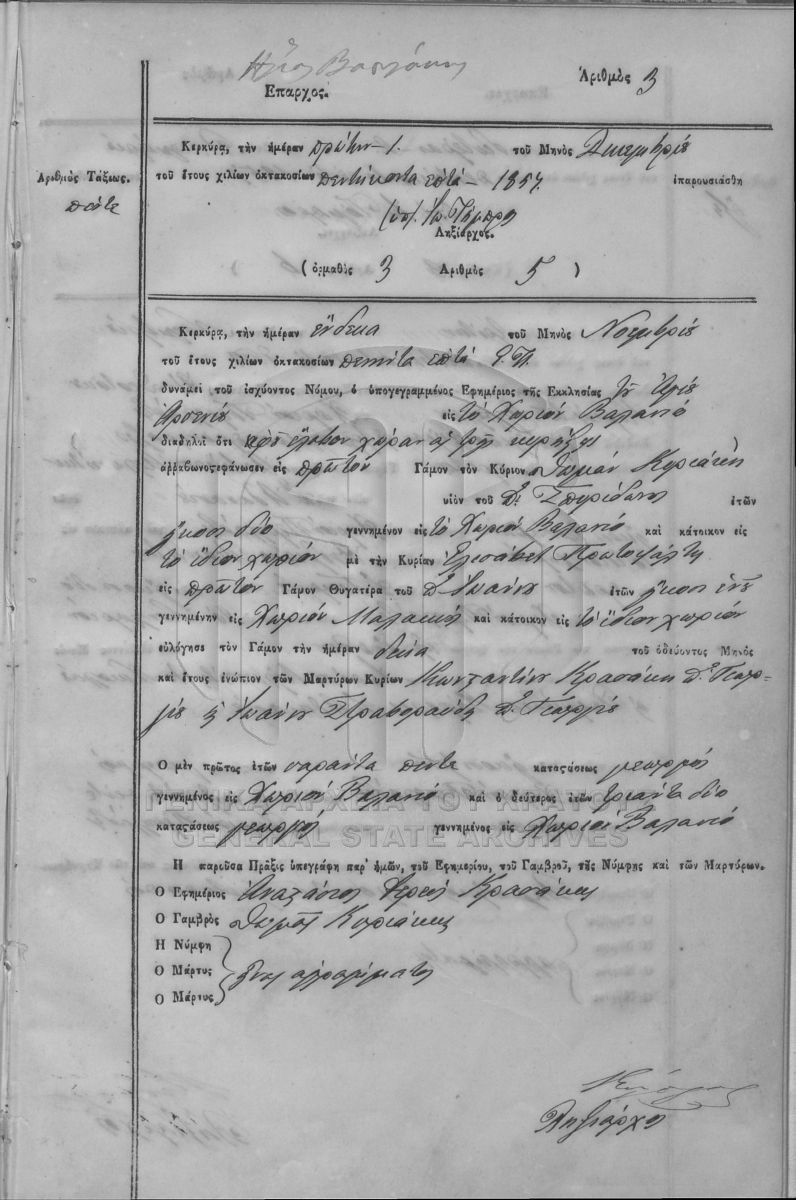 Ἀριθμὸς 3
Ἐπαρχος.
Κερκύρᾳ, τὴν ἡμέραν πρώτην - 1. τοῦ Μηνὸς Δεκεμβρίου
τοῦ ἔτους χιλίων ὀκτακοσίων πεντήκοντα ἑπτά - 1857. ἐπαρουσιάσθη
Ἀριθμὸς Τάξεως.
πέντε
Ληξίαρχος.
(ὁρμαθὸς 3 Ἀριθμὸς 5 )
Κερκύρᾳ, τὴν ἡμέραν ἕνδεκα τοῦ Μηνὸς Νοεμβρίου
τοῦ ἔτους χιλίων ὀκτακοσίων πενῆντα ἑπτά
δυνάμει τοῦ ἰσχύοντος Νόμου, ὁ ὑπογεγραμμένος Ἐφημέριος τῆς Ἐκκλησίας τοῦ Ἁγίου
Ἀρσενίου εἰς τὸ Χωρίον Βαλανιό
διαδηλοῖ ὅτι ἀφοῦ ἔλαβον χώραν αἱ τρεῖς κηρύξεις
ἀῤῥαβωνοςεφάνωσεν εἰς πρῶτον Γάμον τὸν Κύριον Θωμάν Κυριάκη
υἱὸν τοῦ Σπυρίδωνος ἐτῶν
ἤκοσι δύο γεννημένον εἰς τὸ Χωρίον Βαλανιό καὶ κάτοικον εἰς
τὸ ἴδιον χωρίον μὲ τὴν Κυρίαν Ἐλισάβετ Πρωτοψάλτη
εἰς πρῶτον Γάμον Θυγατέρα τοῦ Ἰωάννου ἐτῶν ἤκοσι ἑνός
γεννημένην εἰς Χωρίον Μαλακιό καὶ κάτοικον εἰς τὸ ἴδιον χωρίον
εὐλόγησε τὸν Γάμον τὴν ἡμέραν δέκα τοῦ ὁδεύοντος Μηνὸς
καὶ ἔτους ἐνώπιον τῶν Μαρτύρων Κυρίων Κωνσταντίνου Κρασάκη Γεωρ-
γίου καὶ Ἰωάννου Γεωργίου
Ὁ μὲν πρῶτος ἐτῶν σαράντα πέντε καταςάσεως γεωργός
γεννημένος εἰς Χωρίον Βαλανιό καὶ ὁ δεύτερος ἐτῶν τριάντα δύο
καταςάσεως γεωργός γεννημένος εἰς Χωρίον Βαλανιό
Ἡ παροῦσα Πρᾶξις ὑπεγράφη παρ' ἡμῶν, τοῦ Ἐφημερίου, τοῦ Γαμβροῦ, τῆς Νύμφης καὶ τῶν Μαρτύρων.
Ὁ Ἐφημέριος Ἀναστάσιος Ἱερεύς Κρασάκης
Ὁ Γαμβρὸς Θωμᾶς Κυριάκης
Ἡ Νύμφη
Ὁ Μάρτυς εἶναι ἀγράμματοι
Ὁ Μάρτυς
Ληξίαρχος
ΓΕΝΙΚΑ ΑΡΧΕΙΑ ΤΟΥ ΚΡΑΤΟΥΣ
GENERAL STATE ARCHIVES